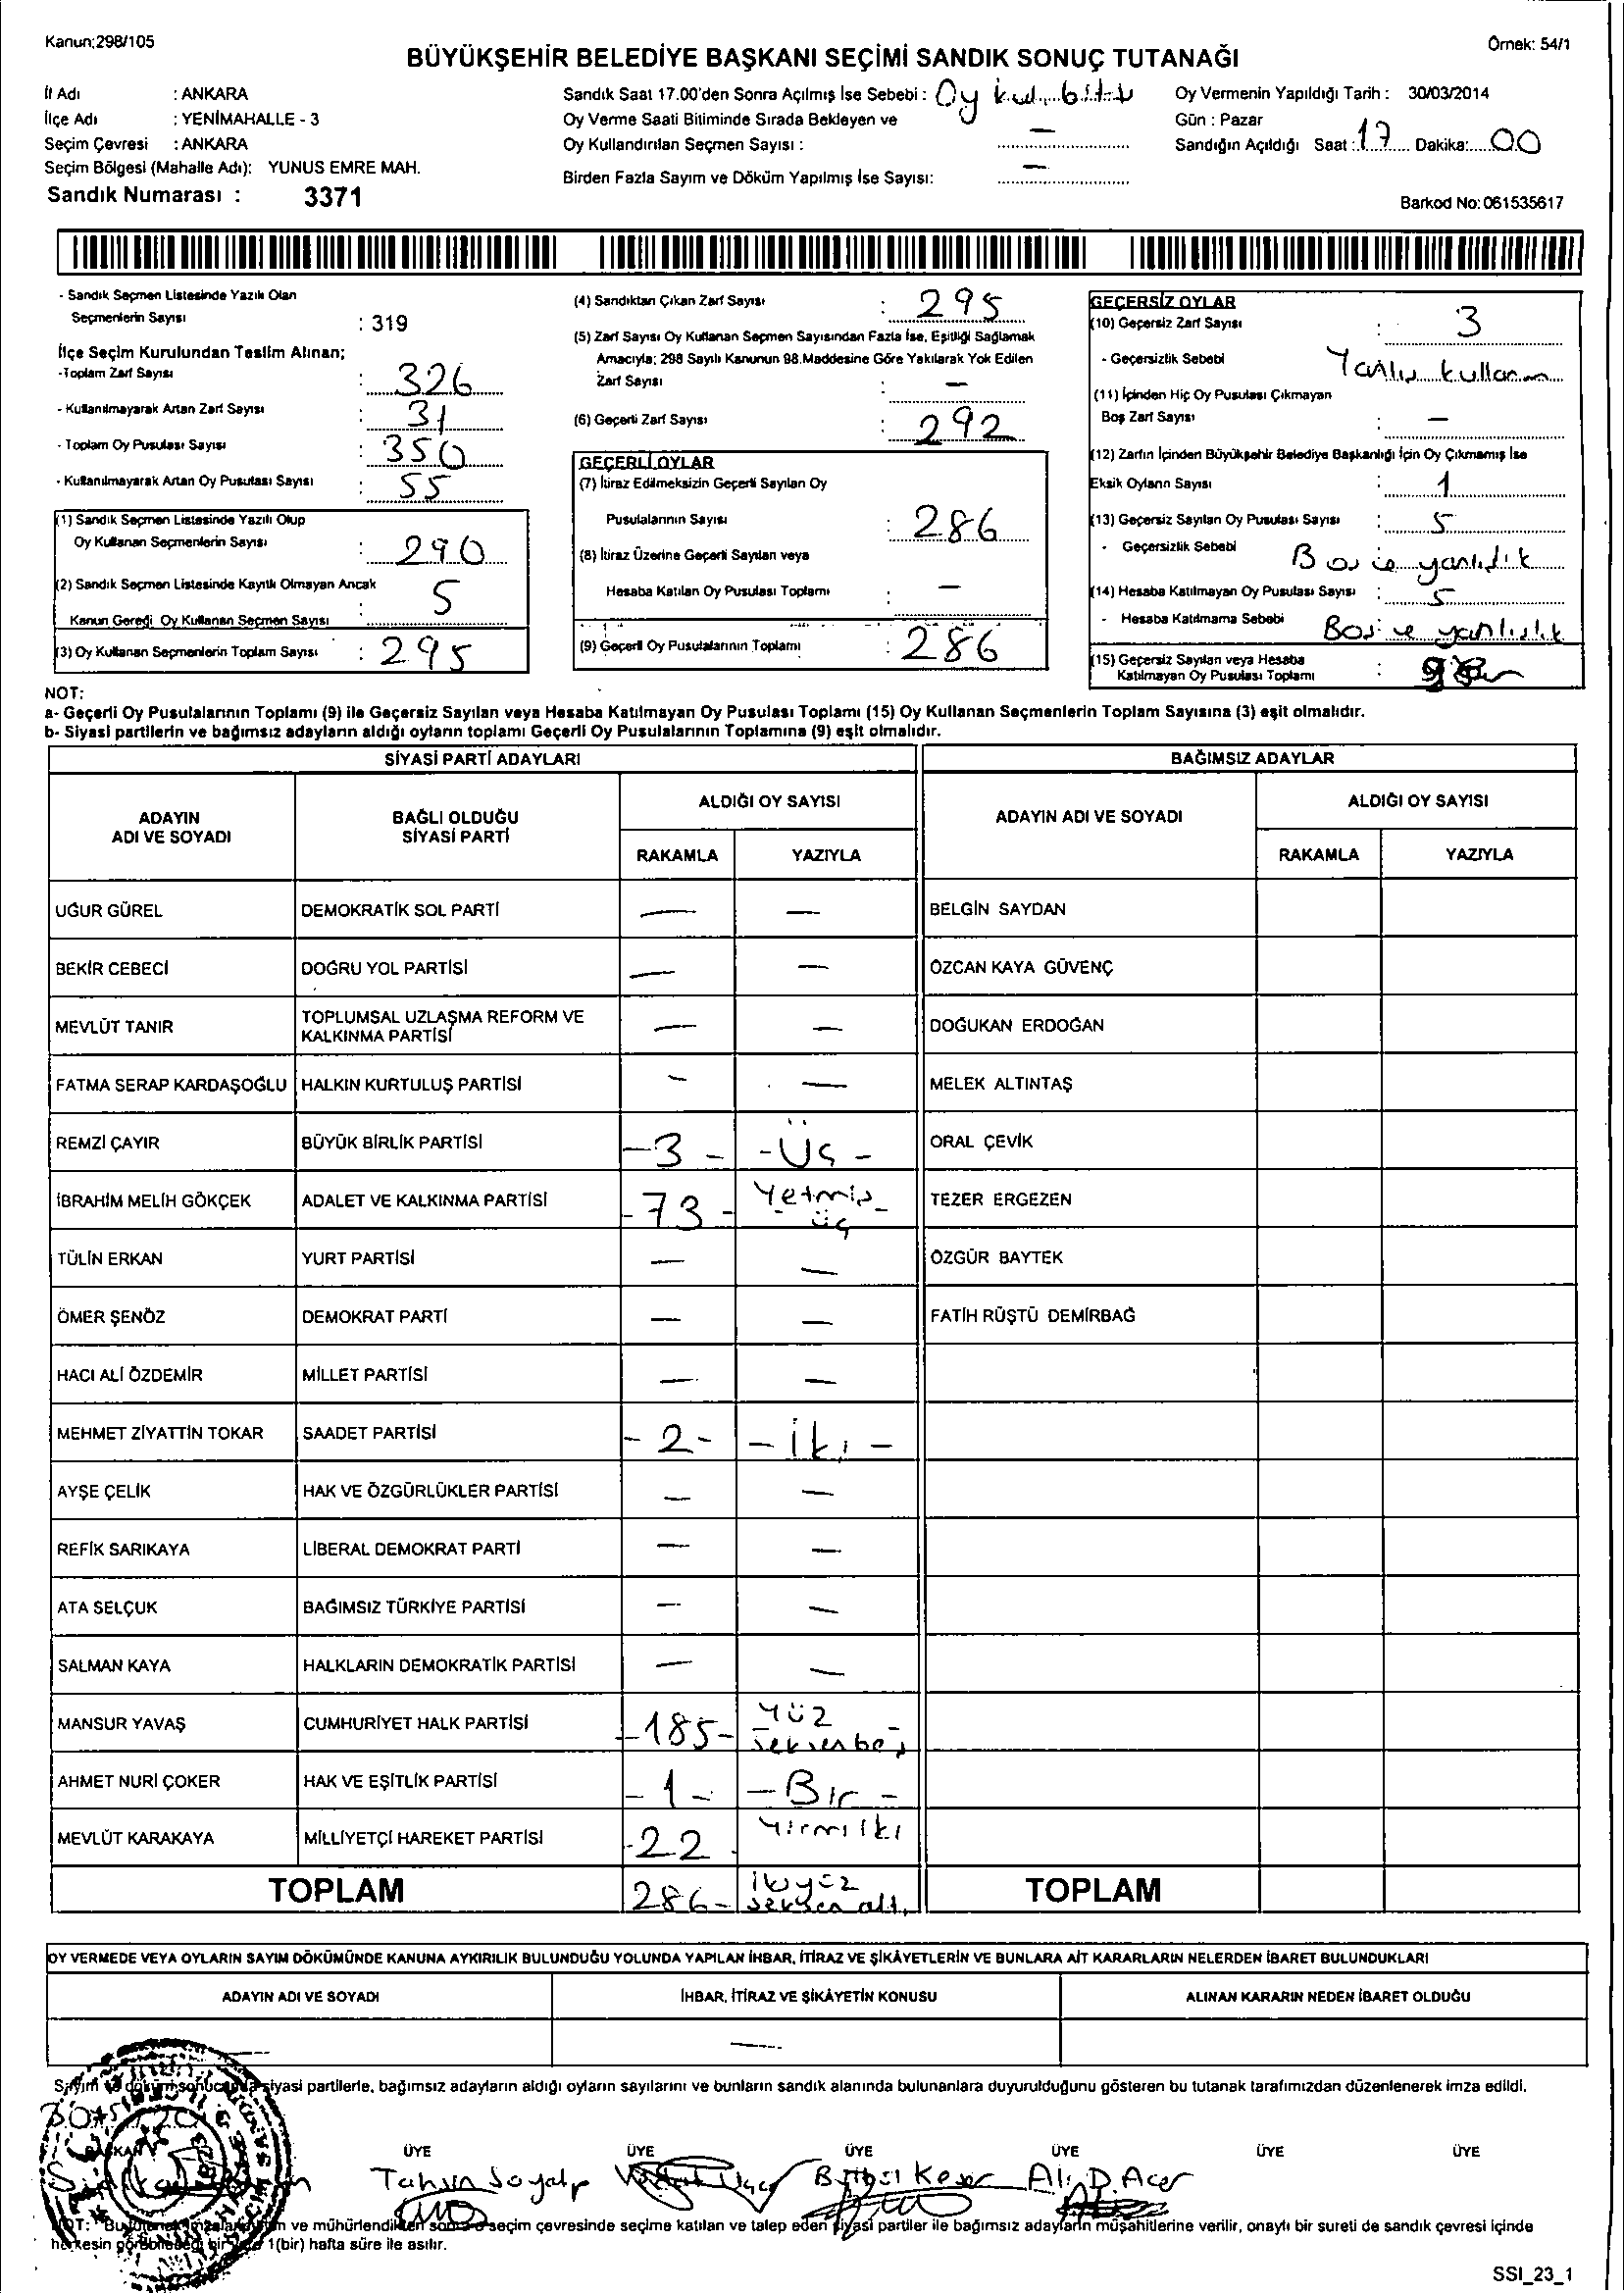 Kanun;298/105
Örnek: 54/1
BÜYÜKŞEHİR BELEDİYE BAŞKANI SEÇİMİ SANDIK SONUÇ TUTANAĞI
İl Adı : ANKARA
İlçe Adı : YENİMAHALLE - 3
Seçim Çevresi : ANKARA
Seçim Bölgesi (Mahalle Adı): YUNUS EMRE MAH.
Sandık Numarası : 3371
Sandık Saat 17.00'den Sonra Açılmış İse Sebebi : Oy
Oy Verme Saati Bitiminde Sırada Bekleyen ve
Oy Kullandırılan Seçmen Sayısı : —
Birden Fazla Sayım ve Döküm Yapılmış İse Sayısı: —
Oy Vermenin Yapıldığı Tarih : 30/03/2014
Gün : Pazar
Sandığın Açıldığı Saat : 17 Dakika: 00
Barkod No: 061535617
- Sandık Seçmen Listesinde Yazılı Olan
Seçmenlerin Sayısı : 319
İlçe Seçim Kurulundan Teslim Alınan;
-Toplam Zarf Sayısı : 326
- Kullanılmayarak Artan Zarf Sayısı : 31
- Toplam Oy Pusulası Sayısı : 350
- Kullanılmayarak Artan Oy Pusulası Sayısı : 55
(1) Sandık Seçmen Listesinde Yazılı Olup
Oy Kullanan Seçmenlerin Sayısı : 290
(2) Sandık Seçmen Listesinde Kayıtlı Olmayan Ancak
Kanun Gereği Oy Kullanan Seçmen Sayısı : 5
(3) Oy Kullanan Seçmenlerin Toplam Sayısı : 295
(4) Sandıktan Çıkan Zarf Sayısı : 295
(5) Zarf Sayısı Oy Kullanan Seçmen Sayısından Fazla İse, Eşitliği Sağlamak
Amacıyla; 298 Sayılı Kanunun 98.Maddesine Göre Yakılarak Yok Edilen
Zarf Sayısı : —
(6) Geçerli Zarf Sayısı : 292
GEÇERLİ OYLAR
(7) İtiraz Edilmeksizin Geçerli Sayılan Oy
Pusulalarının Sayısı : 286
(8) İtiraz Üzerine Geçerli Sayılan veya
Hesaba Katılan Oy Pusulası Toplamı : —
(9) Geçerli Oy Pusulalarının Toplamı : 286
GEÇERSİZ OYLAR
(10) Geçersiz Zarf Sayısı : 3
- Geçersizlik Sebebi Yanlış kullanım
(11) İçinden Hiç Oy Pusulası Çıkmayan
Boş Zarf Sayısı : —
(12) Zarfın İçinden Büyükşehir Belediye Başkanlığı İçin Oy Çıkmamış İse
Eksik Oyların Sayısı : 1
(13) Geçersiz Sayılan Oy Pusulası Sayısı : 5
- Geçersizlik Sebebi Boş ve yanlışlık
(14) Hesaba Katılmayan Oy Pusulası Sayısı : 5
- Hesaba Katılmama Sebebi Boş ve yanlışlık
(15) Geçersiz Sayılan veya Hesaba
Katılmayan Oy Pusulası Toplamı : 9
NOT:
a- Geçerli Oy Pusulalarının Toplamı (9) ile Geçersiz Sayılan veya Hesaba Katılmayan Oy Pusulası Toplamı (15) Oy Kullanan Seçmenlerin Toplam Sayısına (3) eşit olmalıdır.
b- Siyasi partilerin ve bağımsız adayların aldığı oyların toplamı Geçerli Oy Pusulalarının Toplamına (9) eşit olmalıdır.
SİYASİ PARTİ ADAYLARI BAĞIMSIZ ADAYLAR
ADAYIN ADI VE SOYADI BAĞLI OLDUĞU SİYASİ PARTİ ALDIĞI OY SAYISI ADAYIN ADI VE SOYADI ALDIĞI OY SAYISI
RAKAMLA YAZIYLA RAKAMLA YAZIYLA
UĞUR GÜREL DEMOKRATİK SOL PARTİ — — BELGİN SAYDAN
BEKİR CEBECİ DOĞRU YOL PARTİSİ — — ÖZCAN KAYA GÜVENÇ
MEVLÜT TANIR TOPLUMSAL UZLAŞMA REFORM VE KALKINMA PARTİSİ — — DOĞUKAN ERDOĞAN
FATMA SERAP KARDAŞOĞLU HALKIN KURTULUŞ PARTİSİ — — MELEK ALTINTAŞ
REMZİ ÇAYIR BÜYÜK BİRLİK PARTİSİ -3- -Üç- ORAL ÇEVİK
İBRAHİM MELİH GÖKÇEK ADALET VE KALKINMA PARTİSİ -73- Yetmiş üç TEZER ERGEZEN
TÜLİN ERKAN YURT PARTİSİ — — ÖZGÜR BAYTEK
ÖMER ŞENÖZ DEMOKRAT PARTİ — — FATİH RÜŞTÜ DEMİRBAĞ
HACI ALİ ÖZDEMİR MİLLET PARTİSİ — —
MEHMET ZİYATTİN TOKAR SAADET PARTİSİ -2- -İki-
AYŞE ÇELİK HAK VE ÖZGÜRLÜKLER PARTİSİ — —
REFİK SARIKAYA LİBERAL DEMOKRAT PARTİ — —
ATA SELÇUK BAĞIMSIZ TÜRKİYE PARTİSİ — —
SALMAN KAYA HALKLARIN DEMOKRATİK PARTİSİ — —
MANSUR YAVAŞ CUMHURİYET HALK PARTİSİ -185- Yüz seksenbeş
AHMET NURİ ÇOKER HAK VE EŞİTLİK PARTİSİ -1- -Bir-
MEVLÜT KARAKAYA MİLLİYETÇİ HAREKET PARTİSİ -22- Yirmi iki
TOPLAM 286- ikiyüz seksen altı TOPLAM
OY VERMEDE VEYA OYLARIN SAYIM DÖKÜMÜNDE KANUNA AYKIRILIK BULUNDUĞU YOLUNDA YAPILAN İHBAR, İTİRAZ VE ŞİKÂYETLERİN VE BUNLARA AİT KARARLARIN NELERDEN İBARET BULUNDUKLARI
ADAYIN ADI VE SOYADI İHBAR, İTİRAZ VE ŞİKÂYETİN KONUSU ALINAN KARARIN NEDEN İBARET OLDUĞU
— —
Sayım ve döküm sonucunda siyasi partilerle, bağımsız adayların aldığı oyların sayılarını ve bunların sandık alanında bulunanlara duyurulduğunu gösteren bu tutanak tarafımızdan düzenlenerek imza edildi.
BAŞKAN ÜYE ÜYE ÜYE ÜYE ÜYE ÜYE
Tahsin Soyalp Ali D. Acer
NOT: Bu ve mühürlendikten sonra seçim çevresinde seçime katılan ve talep eden siyasi partiler ile bağımsız adayların müşahitlerine verilir, onaylı bir sureti de sandık çevresi içinde
herkesin görebileceği bir 1(bir) hafta süre ile asılır.
SSI_23_1